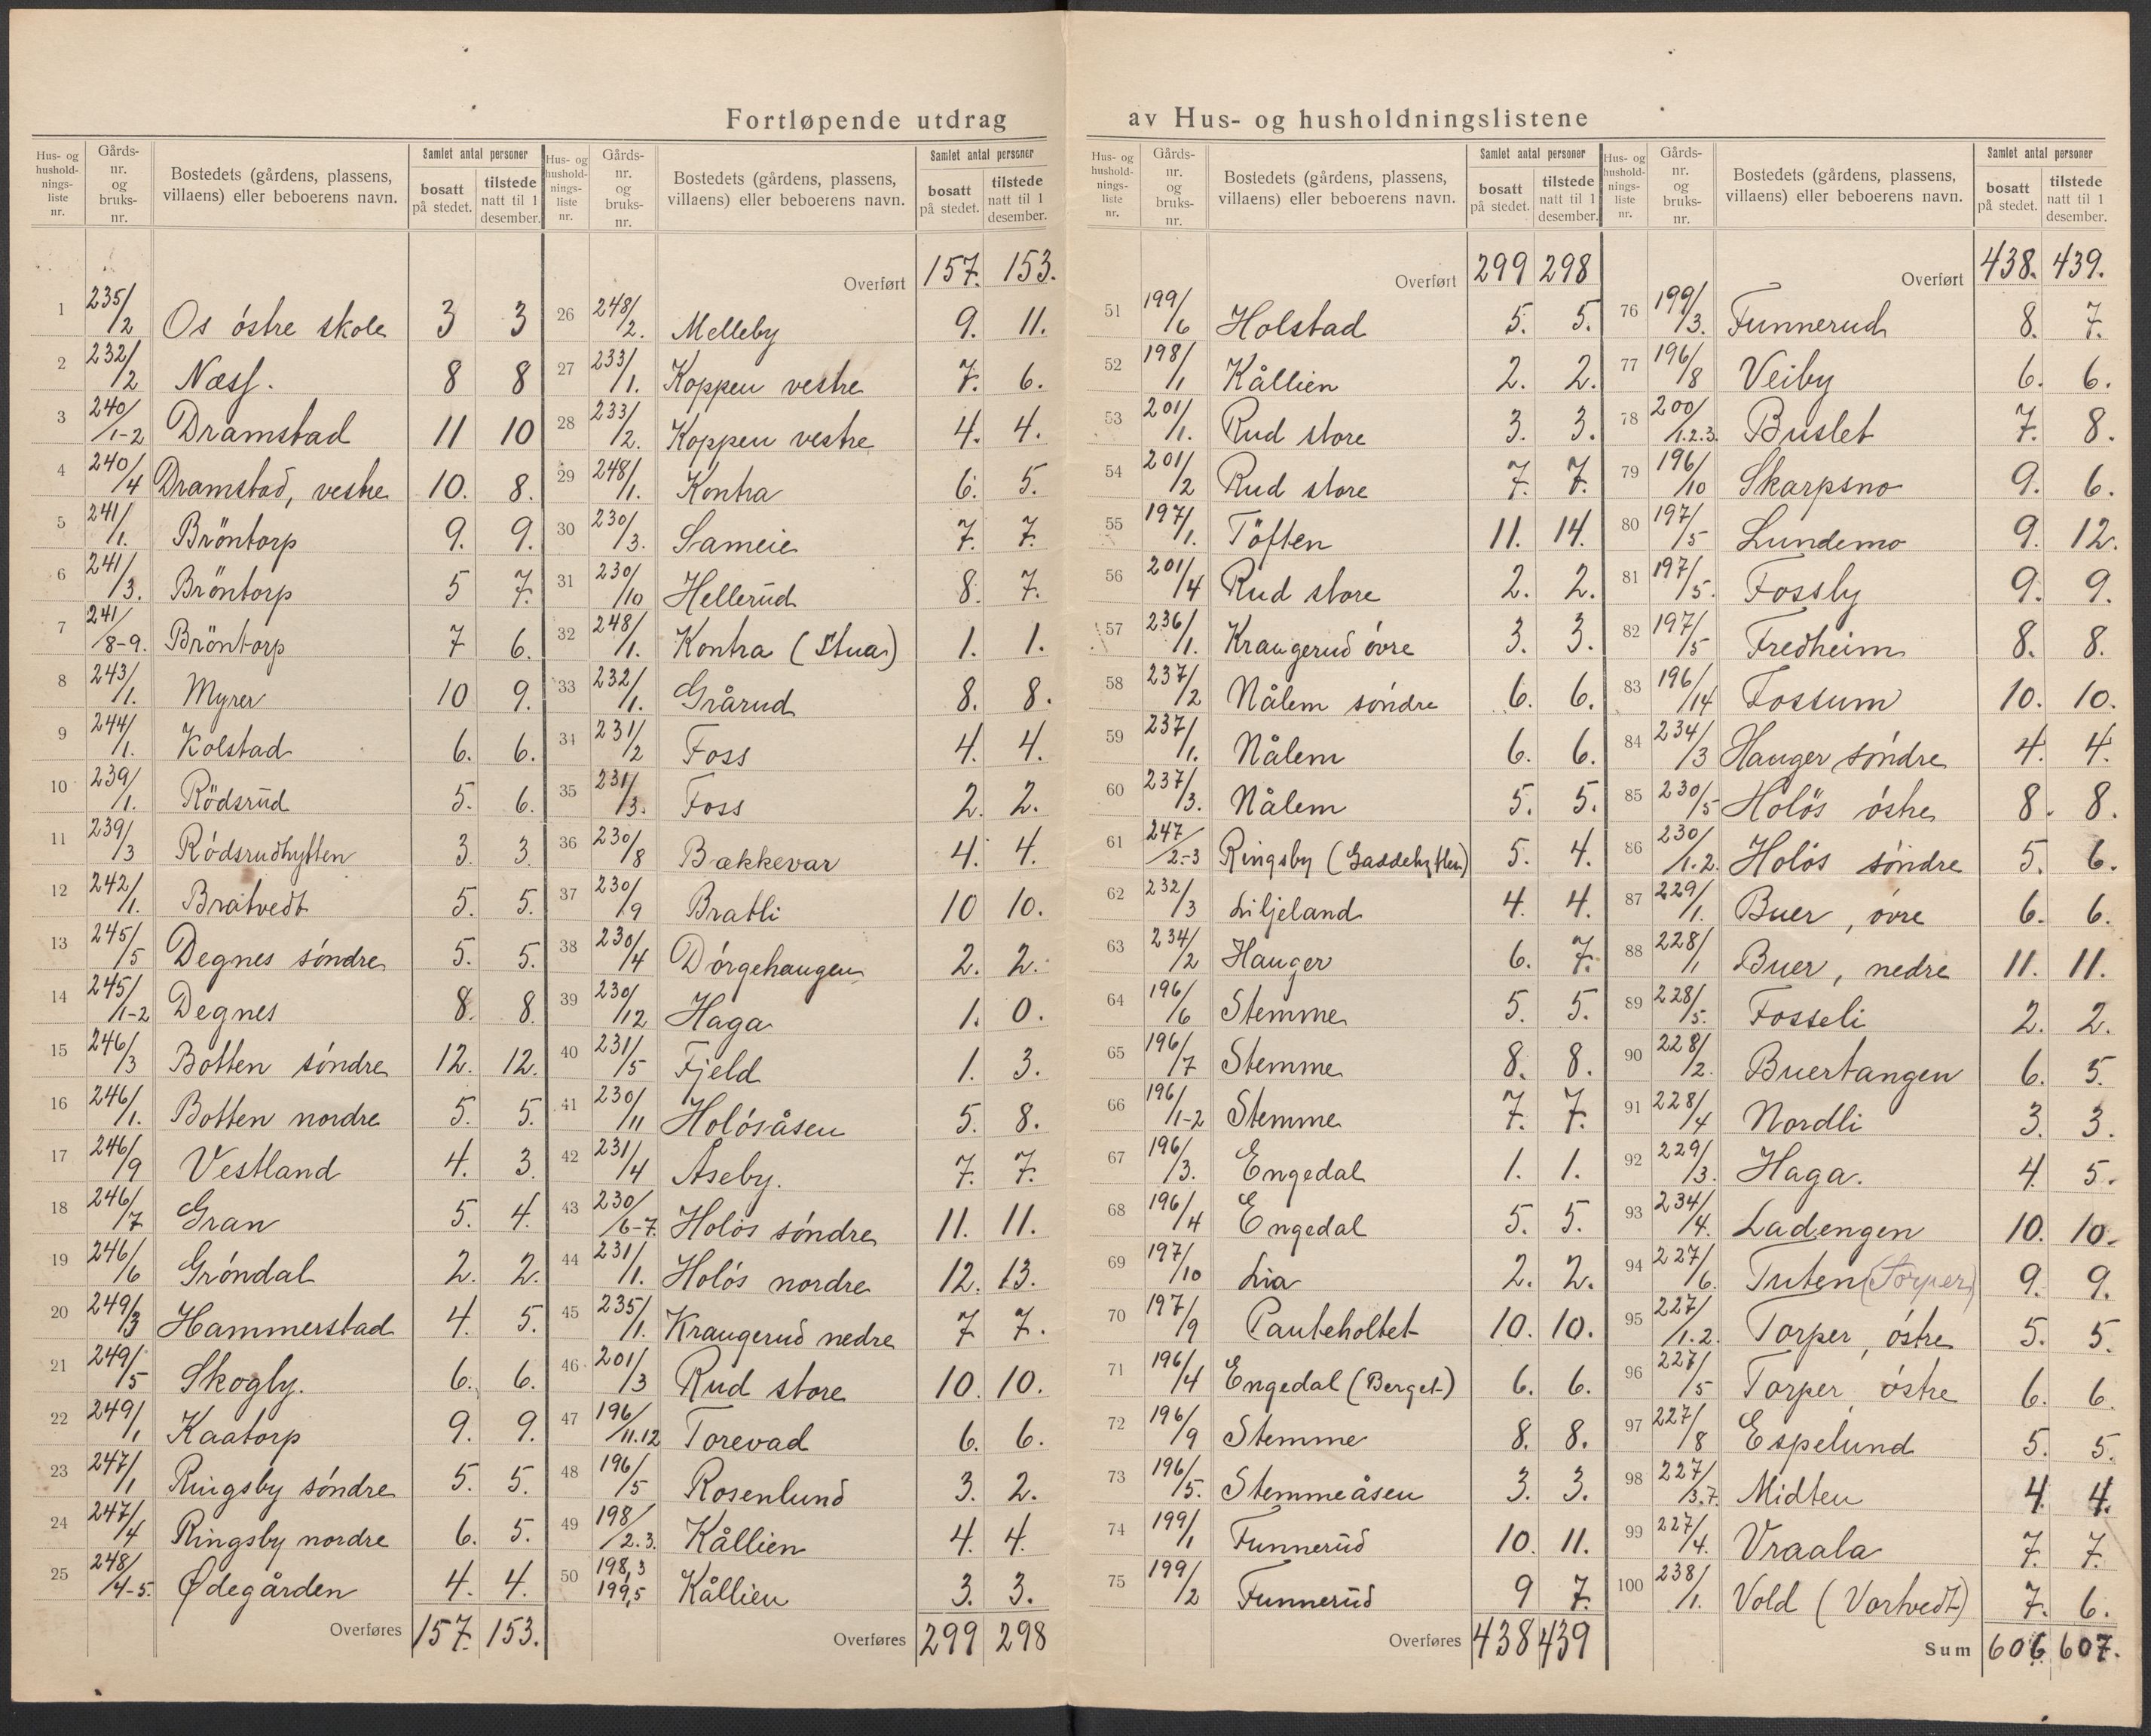 Fortløpende utdrag av Hus- og husholdningslistene
Hus- og husholdningsliste nr. | Gårds-nr. og bruks-nr. | Bostedets (gårdens, plassens, villaens) eller beboerens navn. | Samlet antal personer: bosatt på stedet. | tilstede natt til 1 desember.
1 235/2 Os östre skole 3 3
2 232/2 Næss. 8 8
3 240/1-2 Dramstad 11 10
4 240/4 Dramstad, vestre 10. 8.
5 241/1. Bröntorp 9. 9.
6 241/3. Bröntorp 5 7.
7 241/8-9. Bröntorp 7 6.
8 243/1. Myrer 10 9.
9 244/1. Kolstad 6. 6.
10 239/1. Rödsrud 5. 6.
11 239/3 Rödsrudhytten 3. 3.
12 242/1. Bratvedt 5. 5.
13 245/5 Degnes söndre 5. 5.
14 245/1-2 Degnes 8. 8.
15 246/3 Botten söndre 12. 12.
16 246/1. Botten nordre 5. 5.
17 246/9 Vestland 4. 3.
18 246/7 Gran 5. 4.
19 246/6 Gröndal 2. 2.
20 249/3 Hammerstad 4. 5.
21 249/5 Skogly. 6. 6.
22 249/1 Kaatorp 9. 9.
23 247/1 Ringsby söndre 5. 5.
24 247/4 Ringsby nordre 6. 5.
25 248/4-5. Ødegården 4. 4.
Overføres 157. 153.
Hus- og husholdningsliste nr. | Gårds-nr. og bruks-nr. | Bostedets (gårdens, plassens, villaens) eller beboerens navn. | Samlet antal personer: bosatt på stedet. | tilstede natt til 1 desember.
Overført 157. 153.
26 248/2. Melleby 9. 11.
27 233/1. Koppen vestre 7. 6.
28 233/2. Koppen vestre 4. 4.
29 248/1. Kontra 6. 5.
30 230/3. Sameie 7. 7.
31 230/10 Hellerud 8. 7.
32 248/1. Kontra (Stua) 1. 1.
33 232/1. Grårud 8. 8.
34 231/2 Foss 4. 4.
35 231/3. Foss 2. 2.
36 230/8 Bækkevar 4. 4.
37 230/9 Bratli 10 10.
38 230/4 Dörgehaugen 2. 2.
39 230/12 Haga 1. 0.
40 231/5 Fjeld 1. 3.
41 230/11 Holösåsen 5. 8.
42 231/4 Åseby. 7. 7.
43 230/6-7. Holös söndre 11. 11.
44 231/1. Holös nordre 12. 13.
45 235/1. Kraugerud nedre 7 7.
46 201/3 Rud store 10. 10.
47 196/11.12 Torevad 6. 6.
48 196/5 Rosenlund 3. 2.
49 198/2.3. Kållien 4. 4.
50 198,3 199,5 Kållien 3. 3.
Overføres 299 298
Hus- og husholdningsliste nr. | Gårds-nr. og bruks-nr. | Bostedets (gårdens, plassens, villaens) eller beboerens navn. | Samlet antal personer: bosatt på stedet. | tilstede natt til 1 desember.
Overført 299 298
51 199/6 Holstad 5. 5.
52 198/1 Kållien 2. 2.
53 201/1. Rud store 3. 3.
54 201/2 Rud store 7. 7.
55 197/1. Töften 11. 14.
56 201/4 Rud store 2. 2.
57 236/1. Kraugerud övre 3. 3.
58 237/2 Nålem söndre 6. 6.
59 237/1. Nålem 6. 6.
60 237/3. Nålem 5. 5.
61 247/2-3 Ringsby (Gaddehytten) 5. 4.
62 232/3 Liljeland 4. 4.
63 234/2 Hauger 6. 7.
64 196/6 Stemme 5. 5.
65 196/7 Stemme 8. 8.
66 196/1-2 Stemme 7. 7.
67 196/3. Engedal 1. 1.
68 196/4 Engedal 5. 5.
69 197/10 Lia 2. 2.
70 197/9 Pauteholtet 10. 10.
71 196/4 Engedal (Berget) 6. 6.
72 196/9 Stemme 8. 8.
73 196/5. Stemmeåsen 3. 3.
74 199/1 Funnerud 10. 11.
75 199/2 Funnerud 9 7.
Overføres 438 439
Hus- og husholdningsliste nr. | Gårds-nr. og bruks-nr. | Bostedets (gårdens, plassens, villaens) eller beboerens navn. | Samlet antal personer: bosatt på stedet. | tilstede natt til 1 desember.
Overført 438. 439.
76 199/3. Funnerud 8. 7.
77 196/8 Veiby 6. 6.
78 200/1.2.3. Buslet 7. 8.
79 196/10 Skarpsno 9. 6.
80 197/5 Lundemo 9. 12.
81 197/5. Fossby 9. 9.
82 197/5 Fredheim 8. 8.
83 196/14 Fossum 10. 10.
84 234/3 Hauger söndre 4. 4.
85 230/5 Holös östre 8. 8.
86 230/1.2. Holös söndre 5. 6.
87 229/1. Buer, övre 6. 6.
88 228/1 Buer, nedre 11. 11.
89 228/5. Fosseli 2. 2.
90 228/2. Buertangen 6. 5.
91 228/4 Nordli 3. 3.
92 229/3. Haga. 4. 5.
93 234/4. Ladengen 10. 10.
94 227/6. Tuten (Torper) 9. 9.
95 227/1.2. Torper, östre 5. 5.
96 227/5 Torper, östre 6. 6.
97 227/8 Espelund 5. 5.
98 227/3.7. Midten 4. 4.
99 227/4. Vraala 7. 7.
100 238/1. Vold (Vortvedt) 7. 6.
Sum 606 607.